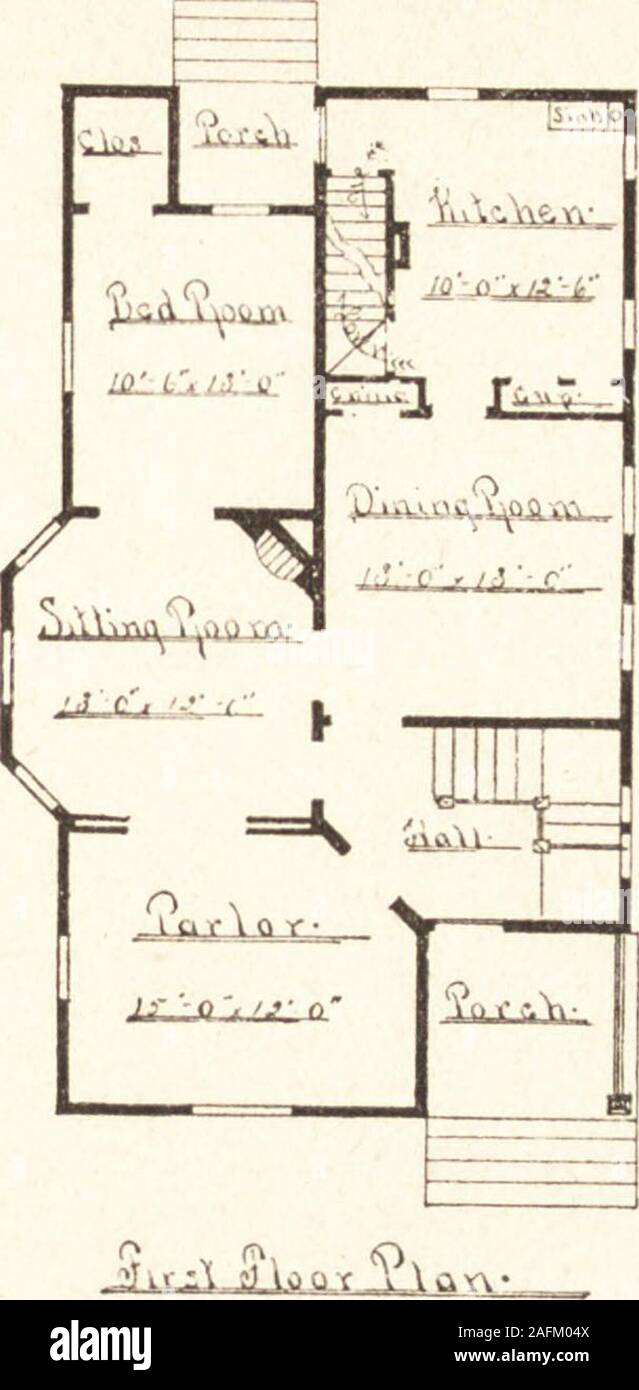 Porch
Clos
Sink
Up
Kitchen.
10'-0" x 12'-6"
Bed Room
10'-6" x 13'-0"
Down
Cup.
Dining Room
13'-0" x 13'-0"
Sitting Room.
Hall.
Parlor.
15'-0" x 12'-0"
Porch.
First Floor Plan.
alamy
Image ID: 2AFM04X
www.alamy.com